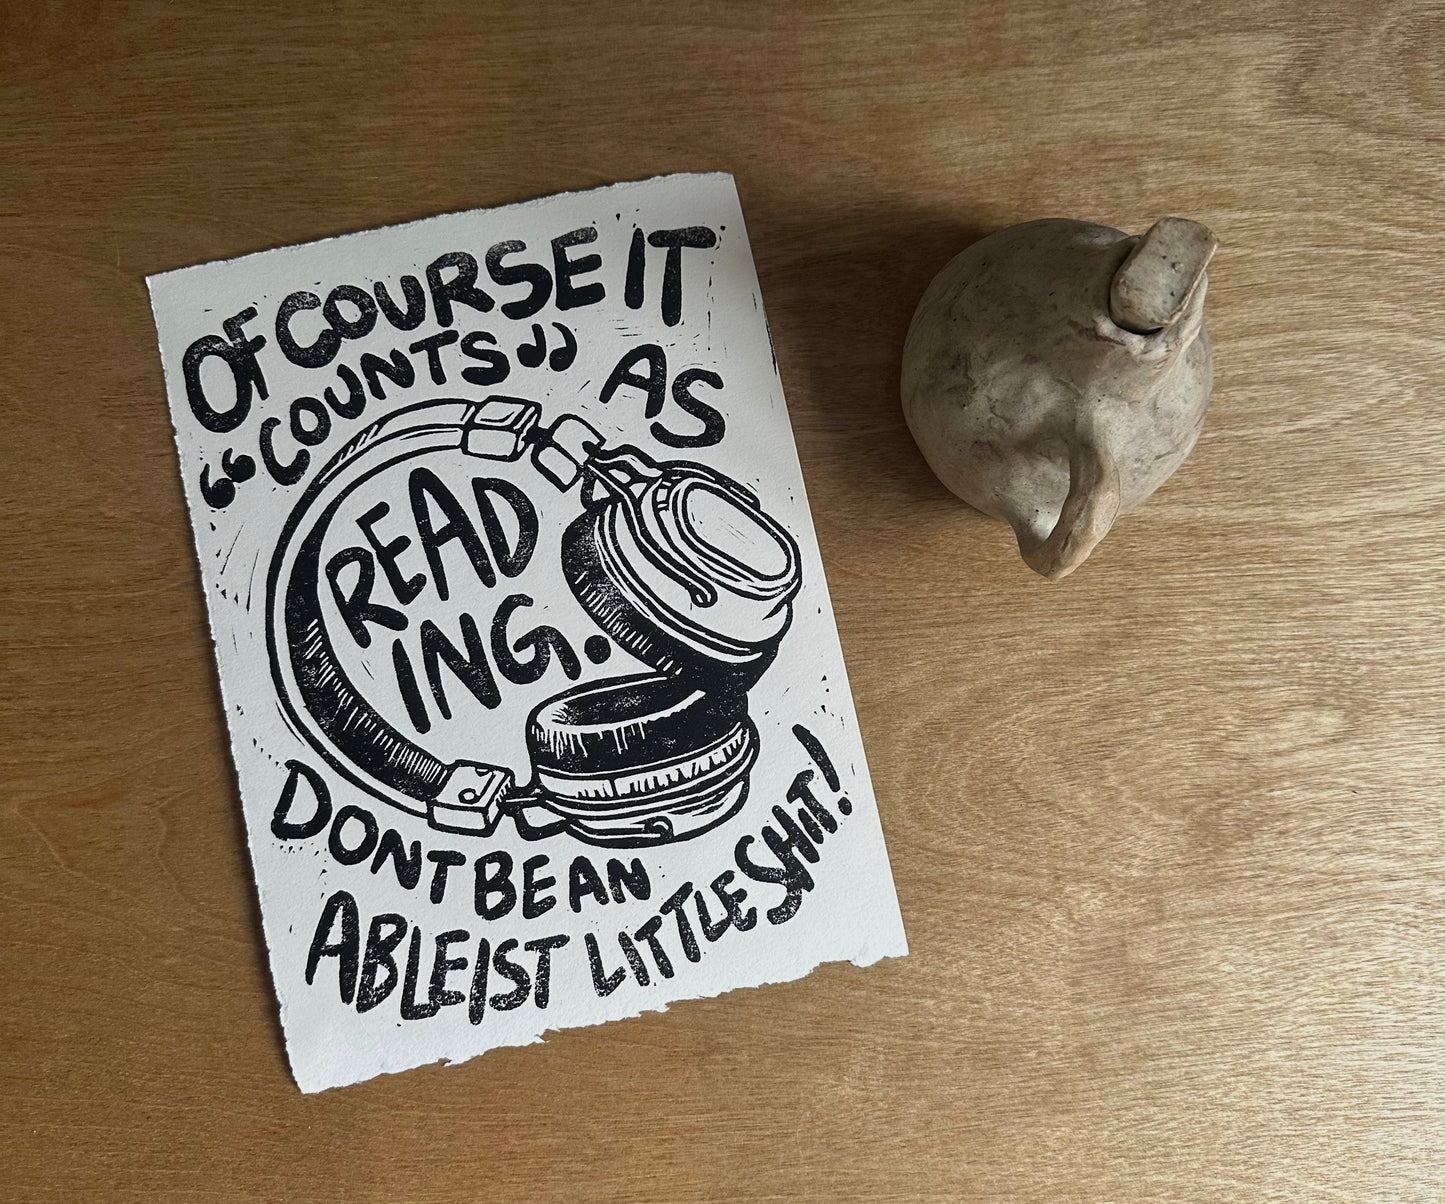 OF COURSE IT
“COUNTS” AS
READ
ING.
DONT BE AN
ABLEIST LITTLE SHiT!